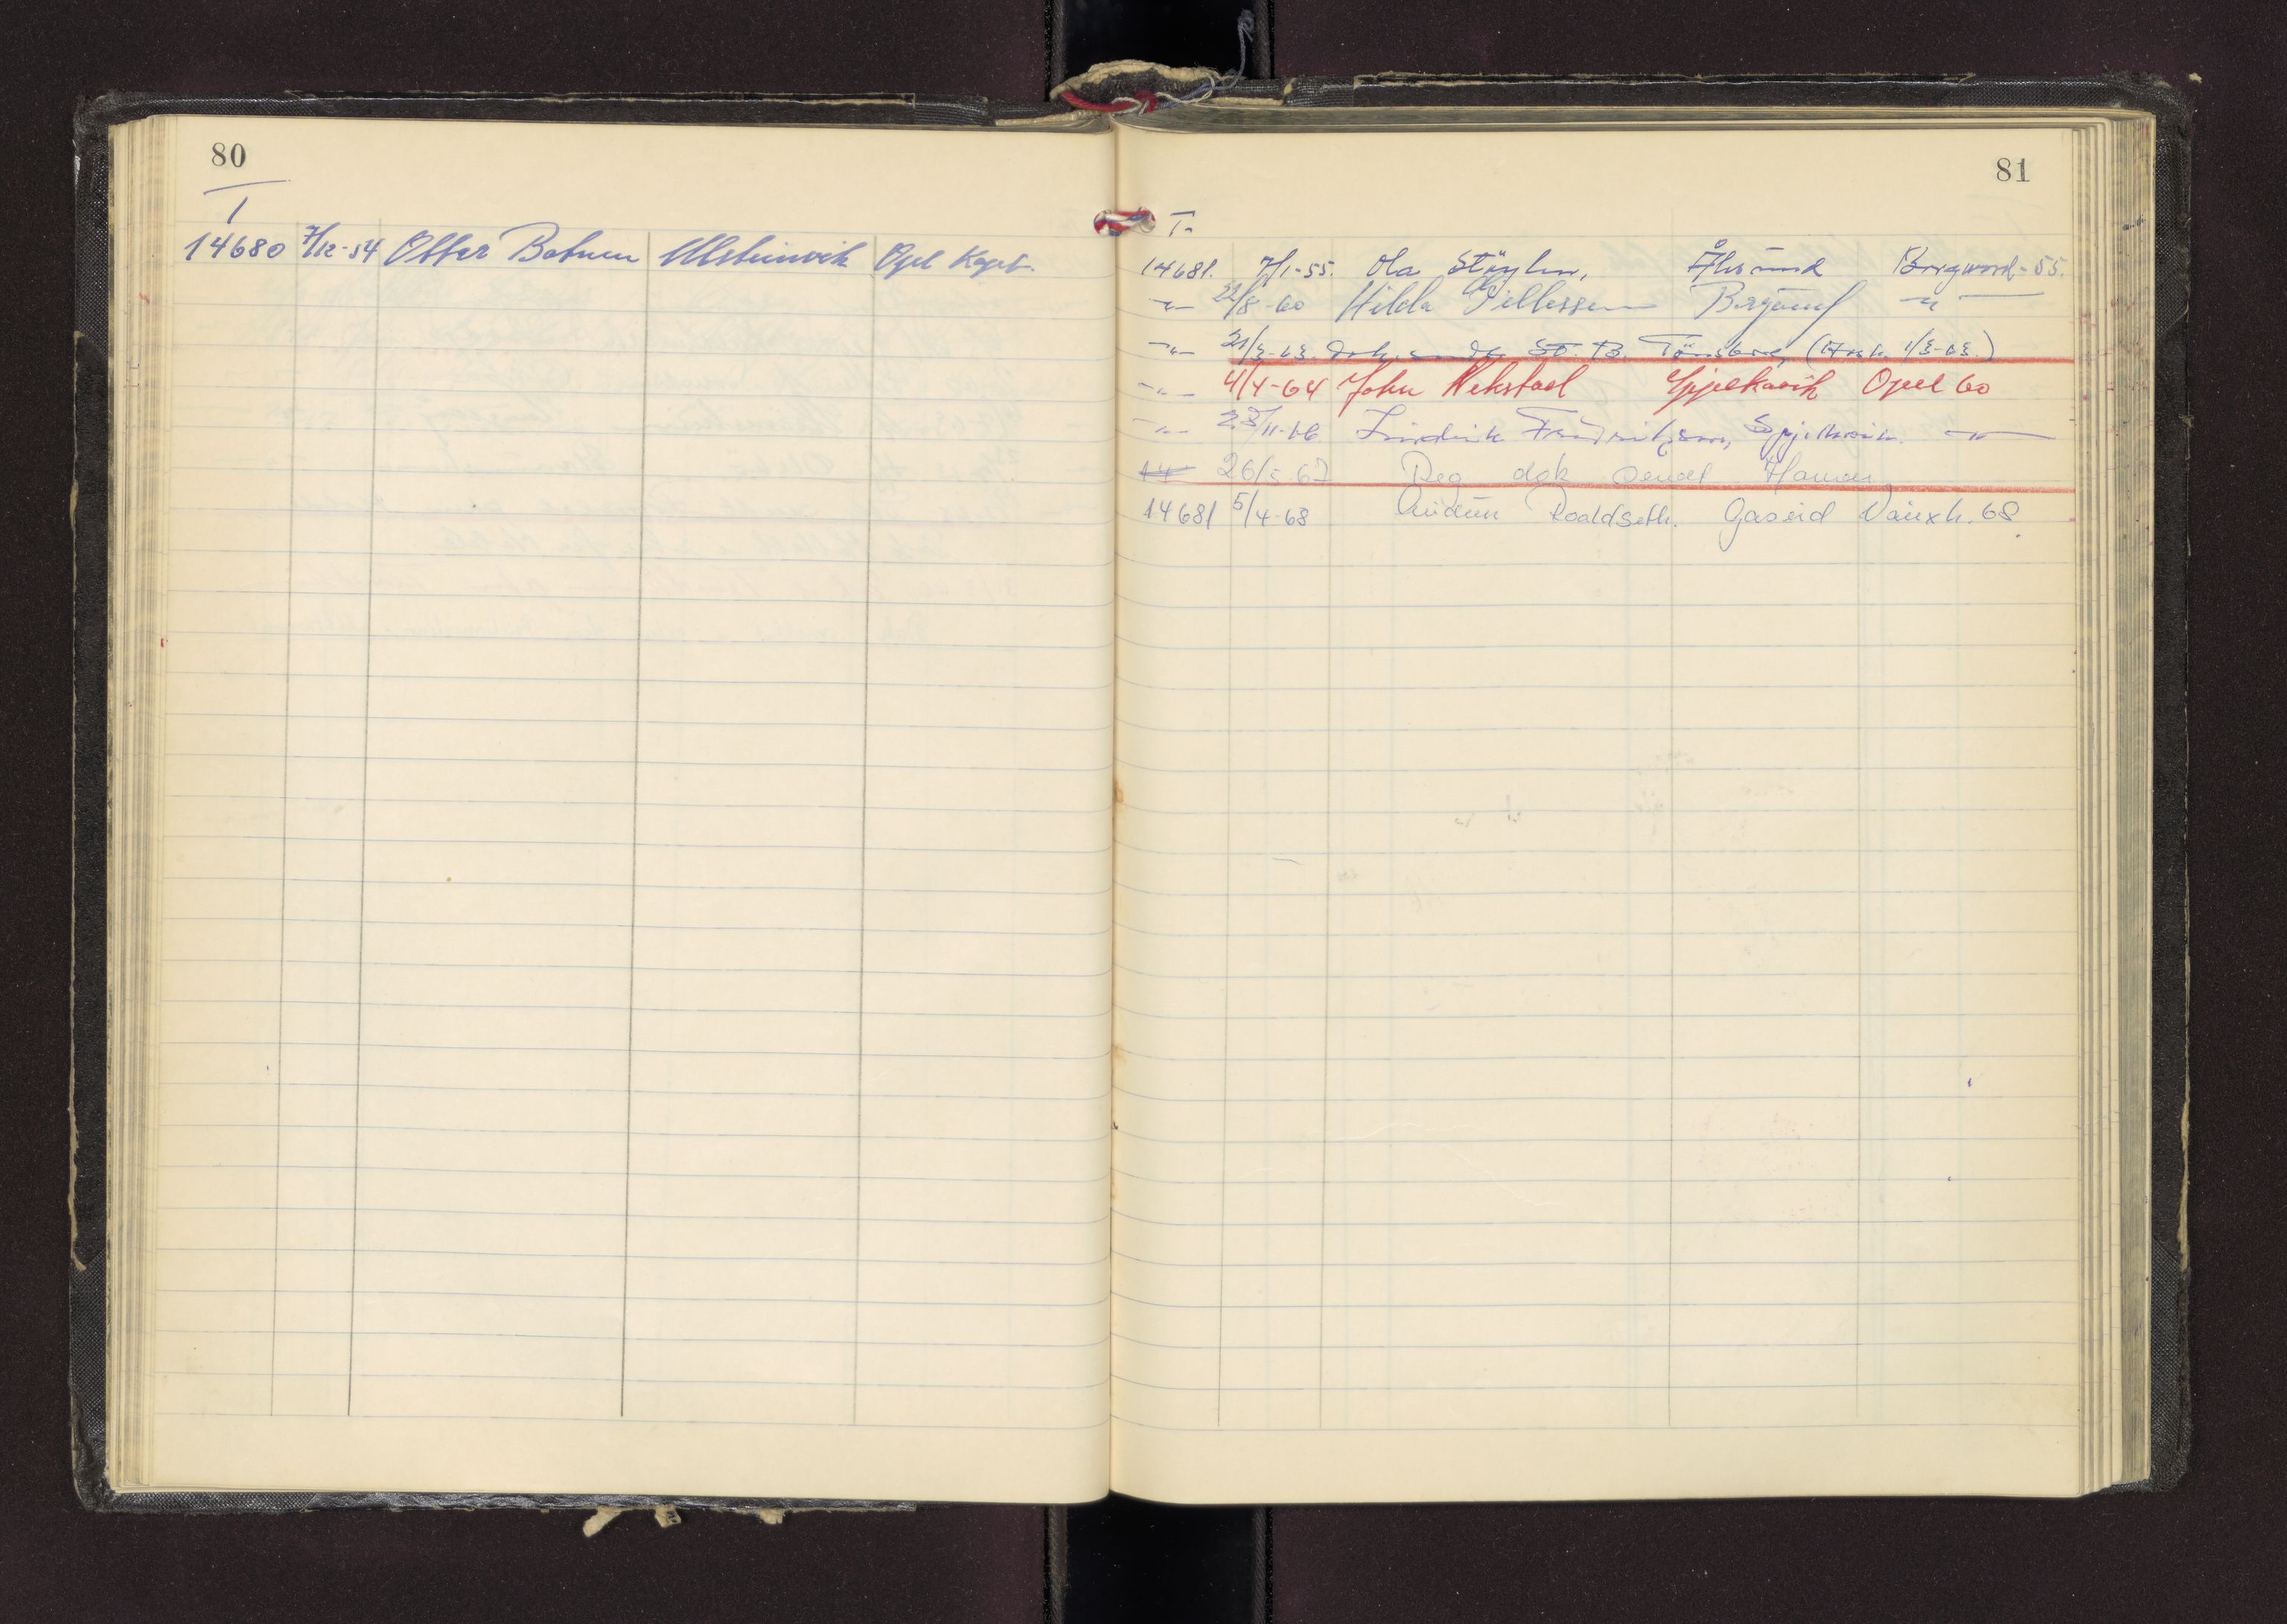 80
T
14680 7/12-54 Otter Botnen Ulsteinvik Opel Kapt.
81
T.
14681. 7/1-55. Ola Støylen, Ålesund Borgward-55.
-"- 22/8-60 Hilda Pillessen Bergmof -"-
-"- 21/3-63. dok. sendt St. B. Tönsberg (Avsk. 1/3-63.)
-"- 4/4-64 John Wekstad Spjelkavik Opel 60
-"- 23/11-66 Fredriksen, Spjelkavik. -"-
14 26/5 67 Reg dok sendt Hamar
14681 5/4-68 Audun Roaldseth. Gåseid Vauxh. 68